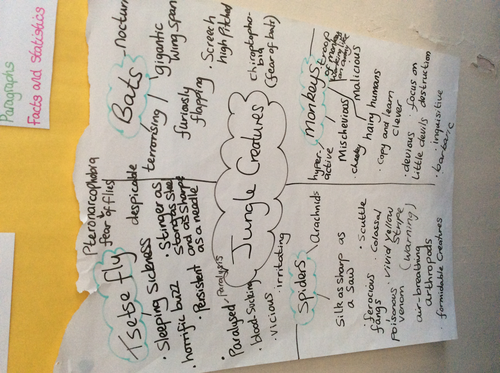 Paragraphs
Facts and Statistics
Jungle Creatures
Tsetse fly
Pteronarcophobia
fear of flies
despicable
Sleeping Sickness
horrific buzz
Persistent
Stinger as
and as sharp
as a needle
Paralysed - Paralysis
blood sucking
vicious
irritating
Bats
nocturn
terrorising
gigantic
wing span
furiously
flapping
Screech
high pitched
chiroptopho-
bia
(fear of bats)
Monkeys
troop
hyper-
active
Mischevious
malicious
cheeky
hairy humans
copy and learn
clever
devious
little devils
focus on
destruction
inquisitive
barbaric
Spiders
Arachnids
Silk as sharp as
a saw
scuttle
colossal
ferocious
fangs
vivid yellow
stripe
(warning)
poisonous
venom
air-breathing
arthropods
formidable creatures